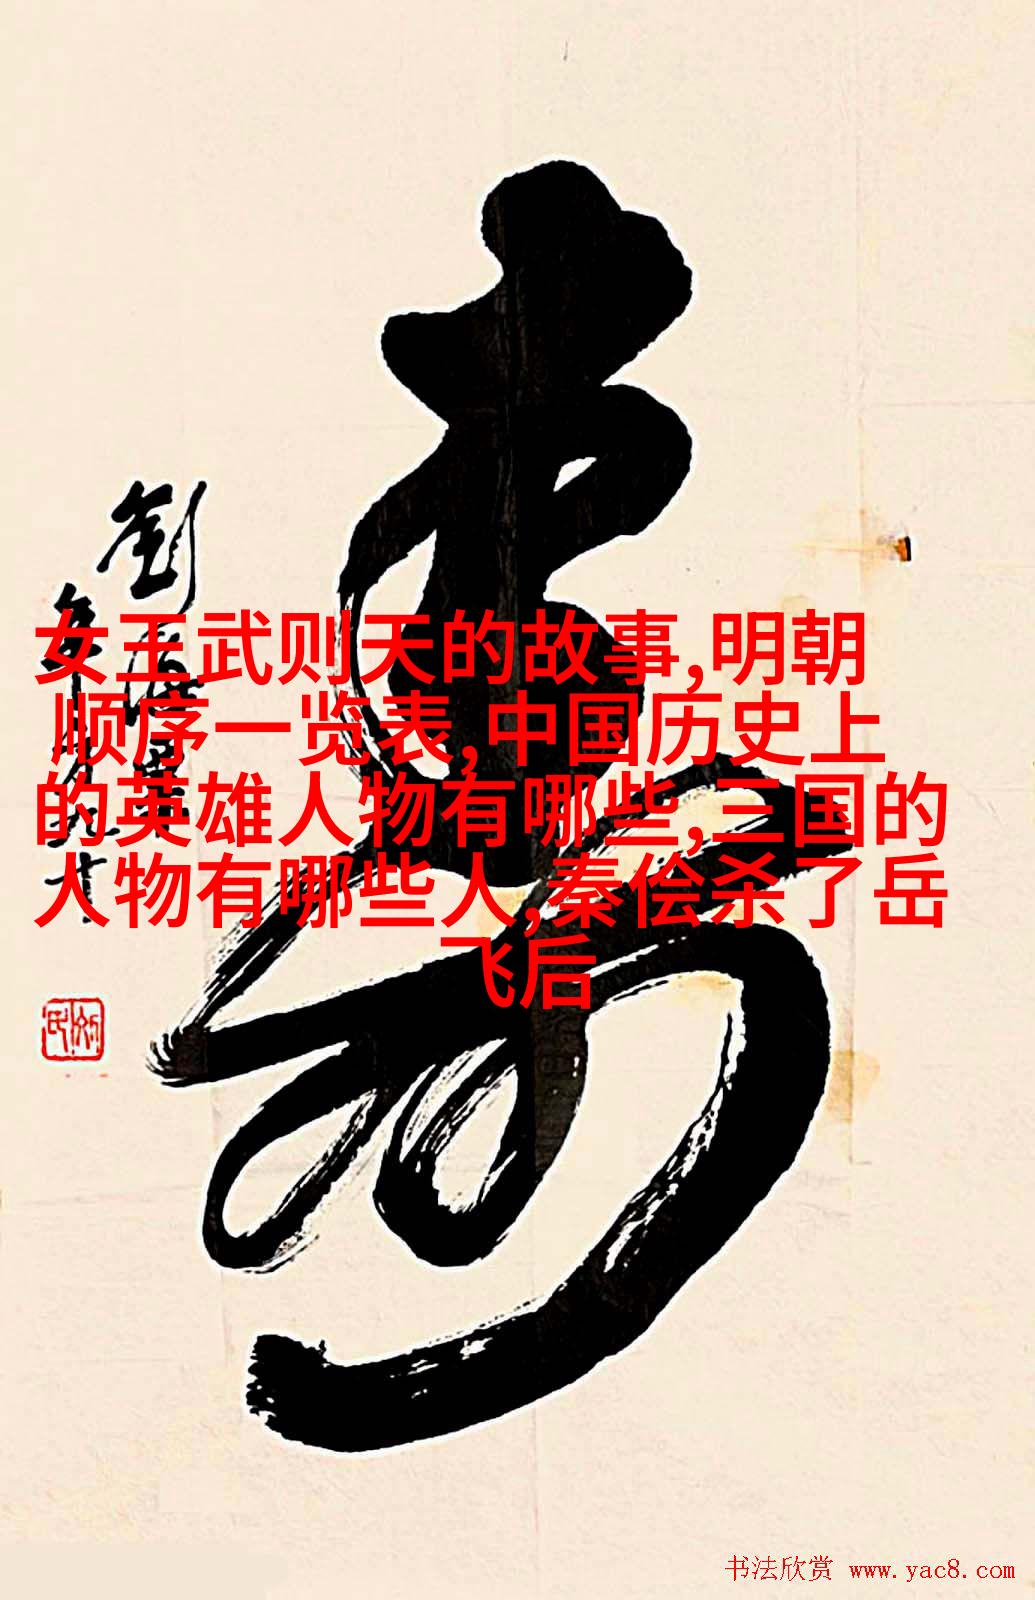 女王武则天的故事,明朝
顺序一览表,中国历史上
的英雄人物有哪些,三国的
人物有哪些人,秦侩杀了岳
飞后
寿
刘海粟
年九十
书法欣赏 www.yac8.com